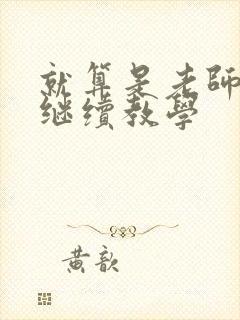 就算是老師
继續教學
黄歆